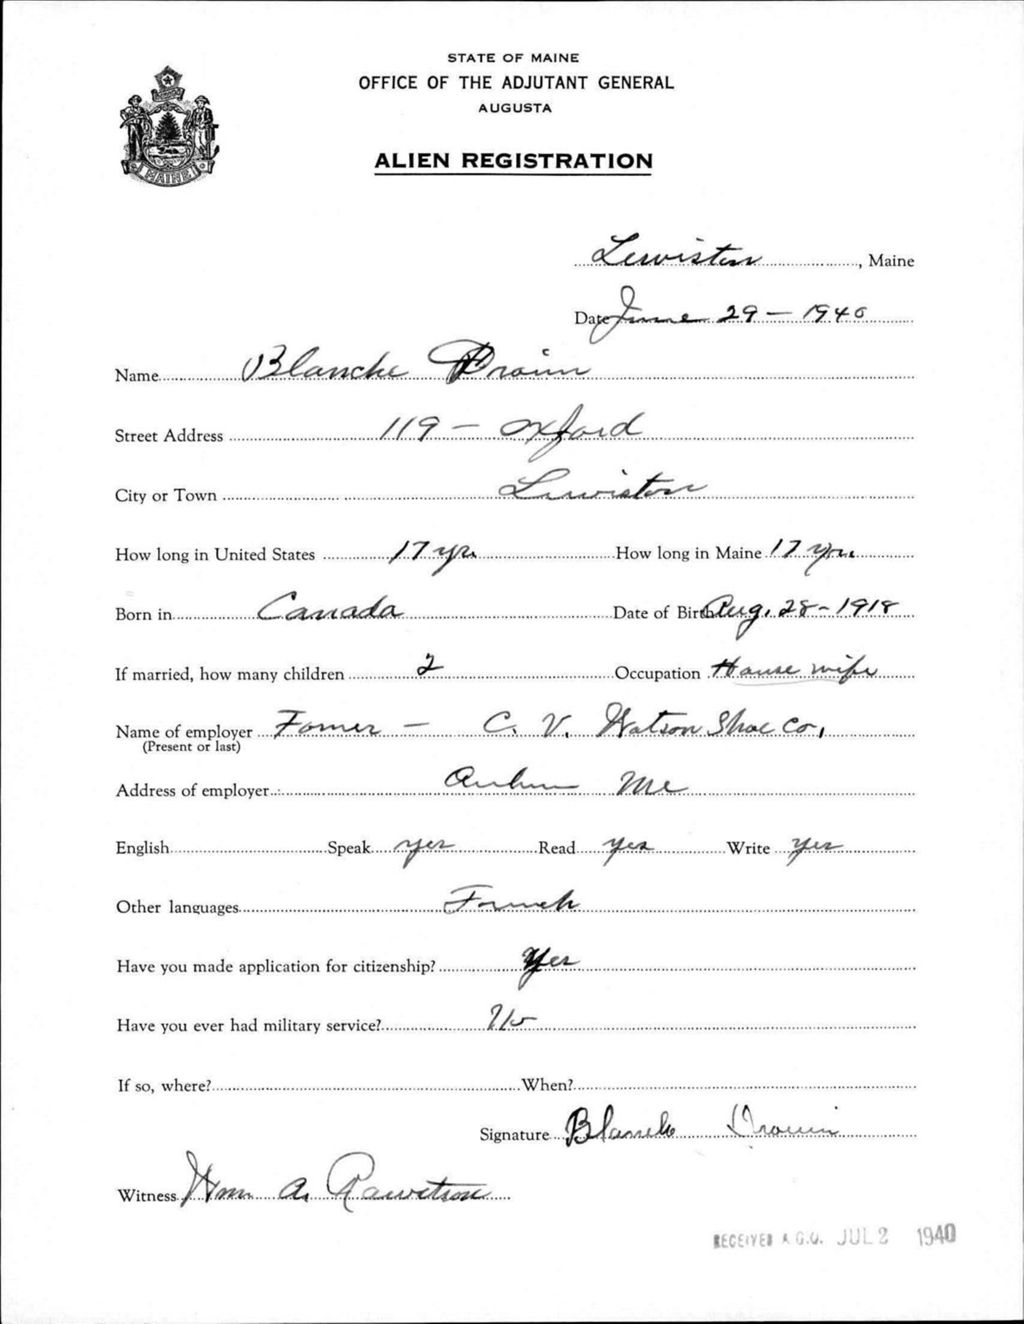 STATE OF MAINE
OFFICE OF THE ADJUTANT GENERAL
AUGUSTA
ALIEN REGISTRATION
MAINE
Lewiston, Maine
Date June 29 - 1940
Name Blanche Drouin
Street Address 119 - Oxford
City or Town Lewiston
How long in United States 17 yrs How long in Maine 17 yrs.
Born in Canada Date of Birth Aug. 28 - 1918
If married, how many children 2 Occupation House wife
Name of employer Former - C. V. Watson Shoe Co.,
(Present or last)
Address of employer Auburn Me
English Speak yes Read yes Write yes
Other languages French
Have you made application for citizenship? Yes
Have you ever had military service? No
If so, where? When?
Signature Blanche Drouin
Witness Wm. A.
RECEIVED A.G.O. JUL 2 1940